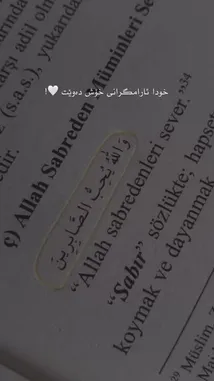 خودا ئارامگرانی خۆش دەوێت 🤍!
(s.a.s.),
ç) Allah Sabreden Müminleri Se
وَاللّٰهُ يُحِبُّ الصَّابِرِينَ
“Allah sabredenleri sever.”³⁴
“Sabır” sözlükte; hapset
koymak ve dayanmak
Müslim,